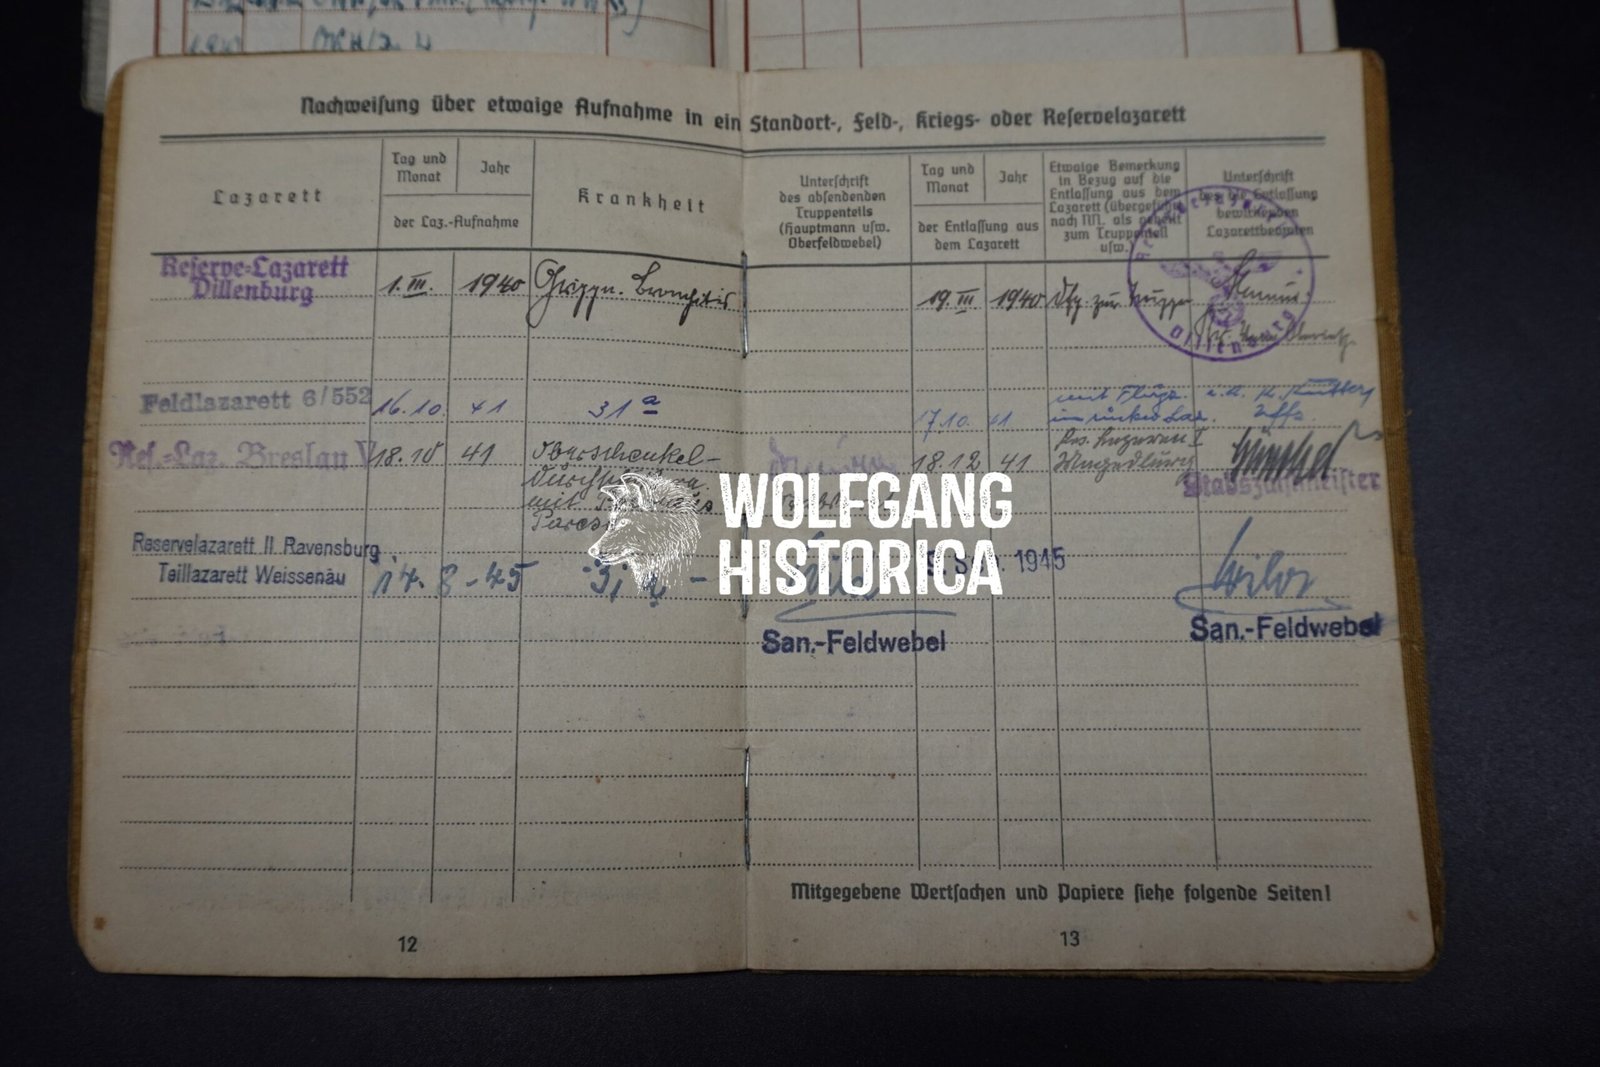 OKH/In 4
Nachweisung über etwaige Aufnahme in ein Standort-, Feld-, Kriegs- oder Reservelazarett
Lazarett
Tag und
Monat
Jahr
der Laz.-Aufnahme
Krankheit
Unterschrift
des absendenden
Truppenteils
(Hauptmann usw.
Oberfeldwebel)
Tag und
Monat
Jahr
der Entlassung aus
dem Lazarett
Etwaige Bemerkung
in Bezug auf die
Entlassung aus dem
Lazarett (übergeführt
nach NN. als geheilt
zum Truppenteil
usw.
Unterschrift
des die Entlassung
bewirkenden
Lazarettbeamten
Reserve-Lazarett
Dillenburg
1. III. 1940 Grippe. Bronchitis
19. III 1940 Dfg. zur Truppe
Dillenburg
Feldlazarett 6/552 16.10. 41 31a
17.10. 41 mit Flugz.
Res.-Laz. Breslau V 18.10 41 Oberschenkel-
mit
18.12 41
Stabszahlmeister
Reservelazarett II Ravensburg
Teillazarett Weissenau
17.8-45
1945
San.-Feldwebel
San.-Feldwebel
WOLFGANG
HISTORICA
Mitgegebene Wertsachen und Papiere siehe folgende Seiten!
12
13